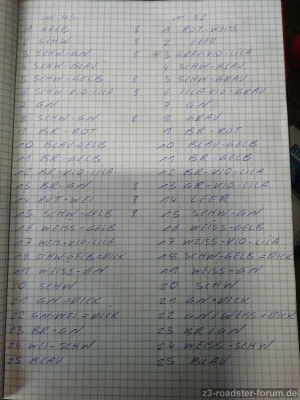 M 43 M 52
1 GELB 8 1 ROT-WEISS
2 SCHW 8 2 LEER
3 SCHW-GN 8 3 GRAU-VIO-LILA
4 SCHW-BLAU 4 SCHW-BLAU
5 SCHW-GELB 8 5 SCHW-GRAU
6 SCHW-VIO-LILA 8 6 LILA-VIO-GRAU
7 GN 7 GN
8 SCHW-GN 8 8 GRAU
9 BR-ROT 9 BR-ROT
10 BLAU-GELB 10 BLAU-GELB
11 BR-GELB 11 BR-GELB
12 BR-VIO-LILA 12 BR-VIO-LILA
13 BR-GN 8 13 GR-VIO-LILA
14 ROT-WEI 8 14 LEER
15 SCHW-GELB 8 15 SCHW-GN
16 WEISS-GELB 16 WEISS-GELB
17 WEIS-VIO-LILA 17 WEISS-VIO-LILA
18 SCHW-GELB=DICK 18 SCHW-GELB=DICK
19 WEISS-GN 19 WEISS-GN
20 SCHW 20 SCHW
21 GN=DICK 21 GN=DICK
22 GN-WEI=DICK 22 GN/WEISS=DICK
23 BR-GN 23 BR/GN
24 WEI-SCHW 24 WEISS-SCHW
25 BLAU 25 BLAU
z3-roadster-forum.de